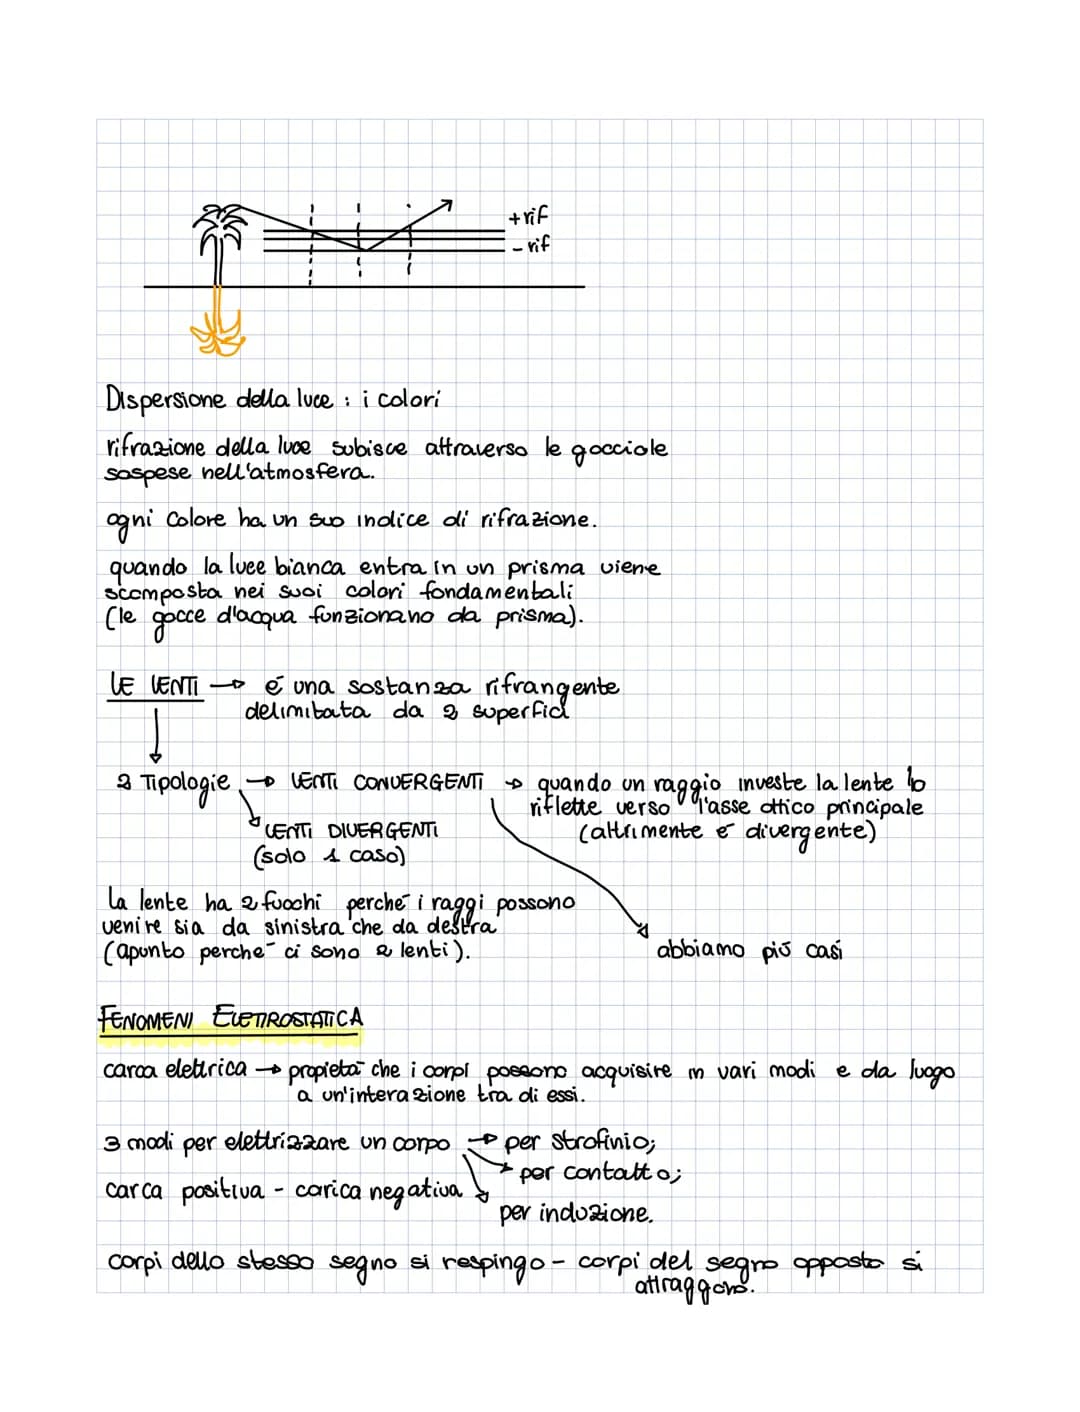 +rif
- rif
Dispersione della luce : i colori
rifrazione della luce subisce attraverso le gocciole
sospese nell'atmosfera.
ogni colore ha un suo indice di rifrazione.
quando la luce bianca entra in un prisma viene
scomposta nei suoi colori fondamentali
(le gocce d'acqua funzionano da prisma).
LE LENTI → é una sostanza rifrangente
delimitata da 2 superfici
2 Tipologie → LENTI CONVERGENTI → quando un raggio investe la lente lo
riflette verso l'asse ottico principale
(altrimente é divergente)
LENTI DIVERGENTI
(solo 1 caso)
la lente ha 2 fuochi perché i raggi possono
venire sia da sinistra che da destra
(apunto perché ci sono 2 lenti).
abbiamo piú casi
FENOMENI ELETTROSTATICA
carca elettrica → propietá che i corpi possono acquisire in vari modi e da luogo
a un'interazione tra di essi.
3 modi per elettrizzare un corpo → per strofinio;
per contatto;
carca positiva - carica negativa
per induzione.
corpi dello stesso segno si respingo - corpi del segno opposto si
attraggono.